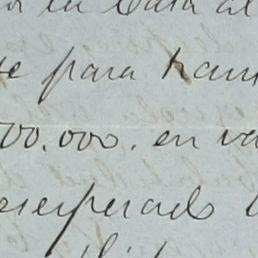 en la Casa al
se para tran
00.000. en va
esesperado l